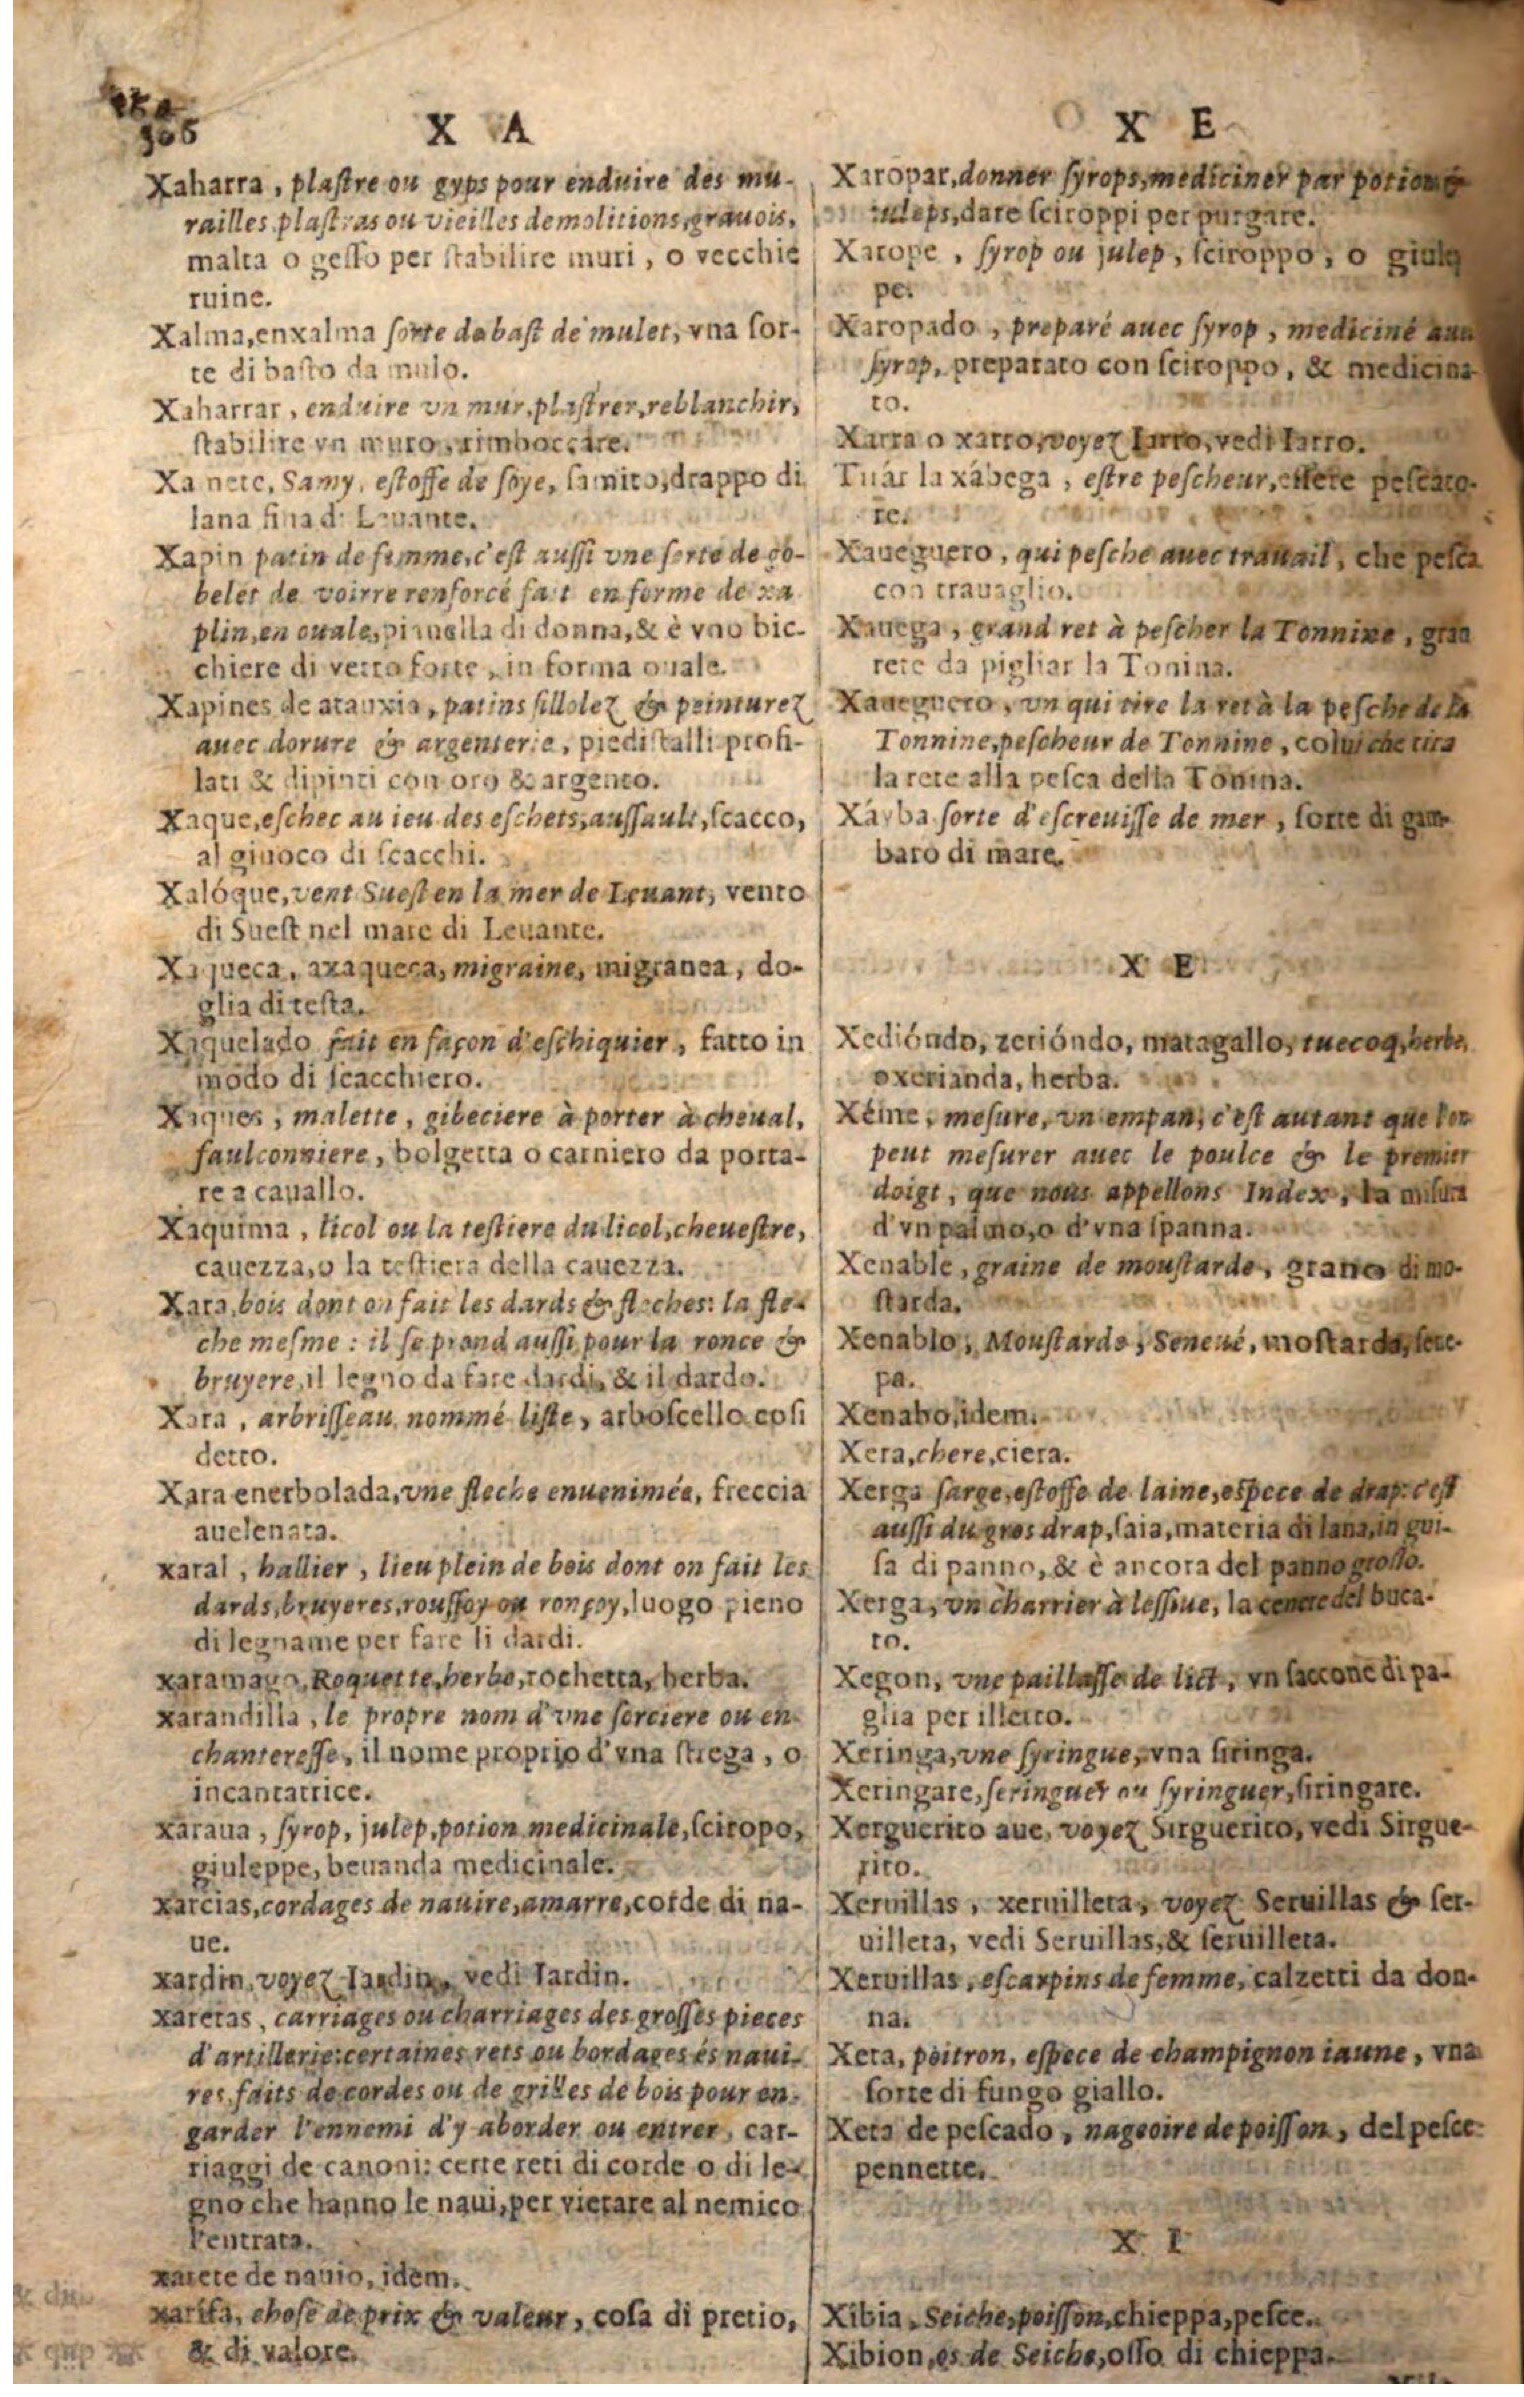 306
X A
Xaharra, plaſtre ou gyps pour enduire des mu-
railles plaſtras ou vieilles demolitions, grauois,
malta o geſſo per ſtabilire muri, o vecchie
ruine.
Xalma, enxalma ſorte de baſt de mulet, vna ſor-
te di baſto da mulo.
Xaharrar, enduire vn mur, plaſtrer, reblanchir,
ſtabilire vn muro, rimboccare.
Xa nete, Samy, eſtoffe de ſoye, ſamito, drappo di
lana fina di Leuante.
Xapin patin de femme, c'eſt auſſi vne ſorte de go-
belet de voirre renforcé fait en forme de xa
plin, en ouale, pianella di donna, & è vno bic-
chiere di vetro forte, in forma ouale.
Xapines de atauxia, patins ſillolez & peinturez
auec dorure & argenterie, piediſtalli profi-
lati & dipinti con oro & argento.
Xaque, eſchec au ieu des eſchets, auſſault, ſcacco,
al giuoco di ſcacchi.
Xalóque, vent Sueſt en la mer de Leuant, vento
di Sueſt nel mare di Leuante.
Xaqueca, axaqueca, migraine, migranea, do-
glia di teſta.
Xaquelado fait en façon d'eſchiquier, fatto in
modo di ſcacchiero.
Xaques, malette, gibeciere à porter à cheual,
faulconniere, bolgetta o carniero da porta-
re a cauallo.
Xaquima, licol ou la teſtiere du licol, cheueſtre,
cauezza, o la teſtiera della cauezza.
Xara, bois dont on fait les dards & fleches: la fle-
che meſme: il ſe prend auſſi pour la ronce &
bruyere, il legno da fare dardi, & il dardo.
Xara, arbriſſeau nommé liſte, arboſcello coſi
detto.
Xara enerbolada, vne fleche enuenimée, freccia
auelenata.
xaral, hallier, lieu plein de bois dont on fait les
dards, bruyeres, rouſſoy ou ronçoy, luogo pieno
di legname per fare li dardi.
xaramago, Roquette, herbe, rochetta, herba.
xarandilla, le propre nom d'vne ſorciere ou en-
chantereſſe, il nome proprio d'vna ſtrega, o
incantatrice.
xaraua, ſyrop, julep, potion medicinale, ſciropo,
giuleppe, beuanda medicinale.
xarcias, cordages de nauire, amarre, corde di na-
ue.
xardin, voyez Iardin, vedi Iardin.
xaretas, carriages ou charriages des groſſes pieces
d'artillerie: certaines rets ou bordages és naui-
res, faits de cordes ou de grilles de bois pour en-
garder l'ennemi d'y aborder ou entrer, car-
riaggi de canoni: certe reti di corde o di le-
gno che hanno le naui, per vietare al nemico
l'entrata.
xarete de nauio, idem.
xarifa, choſe de prix & valeur, coſa di pretio,
& di valore.
X E
Xaropar, donner ſyrops, mediciner par potion &
iuleps, dare ſciroppi per purgare.
Xarope, ſyrop ou julep, ſciroppo, o giulep
pe.
Xaropado, preparé auec ſyrop, mediciné auec
ſyrop, preparato con ſciroppo, & medicina-
to.
Xarra o xarro, voyez Iarro, vedi Iarro.
Tirár la xábega, eſtre peſcheur, eſſere peſcato-
re.
Xaueguero, qui peſche auec trauail, che peſca
con trauaglio.
Xauega, grand ret à peſcher la Tonnine, gran
rete da pigliar la Tonina.
Xaueguero, vn qui tire la ret à la peſche de la
Tonnine, peſcheur de Tonnine, colui che tira
la rete alla peſca della Tonina.
Xáyba ſorte d'eſcreuiſſe de mer, ſorte di gam-
baro di mare.
X E
Xedióndo, zerióndo, matagallo, tuecoq, herbe,
oxerianda, herba.
Xéme, meſure, vn empan, c'eſt autant que l'on
peut meſurer auec le poulce & le premier
doigt, que nous appellons Index, la miſura
d'vn palmo, o d'vna ſpanna.
Xenable, graine de mouſtarde, grano di mo-
ſtarda.
Xenablo, Mouſtarde, Seneué, moſtarda, ſene-
pa.
Xenabo, idem.
Xera, chere, ciera.
Xerga ſarge, eſtoffe de laine, eſpece de drap: c'eſt
auſſi du gros drap, ſaia, materia di lana, in gui-
ſa di panno, & è ancora del panno groſſo.
Xerga, vn charrier à leſſiue, la cenere del buca-
to.
Xegon, vne paillaſſe de lict, vn ſaccone di pa-
glia per il letto.
Xeringa, vne ſyringue, vna ſiringa.
Xeringare, ſeringuer ou ſyringuer, ſiringare.
Xerguerito aue, voyez Sirguerito, vedi Sirgue-
rito.
Xeruillas, xeruilleta, voyez Seruillas & ſer-
uilleta, vedi Seruillas, & ſeruilleta.
Xeruillas, eſcarpins de femme, calzetti da don-
na.
Xeta, poitron, eſpece de champignon iaune, vna
ſorte di fungo giallo.
Xeta de peſcado, nageoire de poiſſon, del peſce
pennette.
X I
Xibia, Seiche, poiſſon, chieppa, peſce.
Xibion, os de Seiche, oſſo di chieppa.